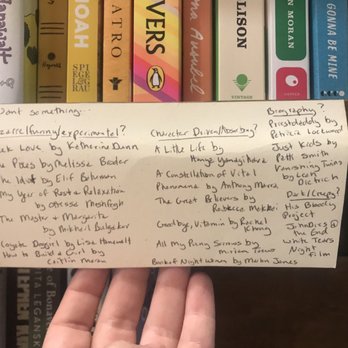 OAH
SPIE
GEL &
GRAU
ATRO
VERS
PENGUIN
LLISON
VINTAGE
N MORAN
GONNA BE MINE
want something...
bizarre/funny/experimental?
Geek Love by Katherine Dunn
The Pisces by Melissa Broder
The Idiot by Elif Batuman
My Year of Rest & Relaxation
by Ottessa Moshfegh
The Master & Margarita
by Mikhail Bulgakov
Coyote Doggirl by Lisa Hanawalt
How to Build a Girl by
Caitlin Moran
Character Driven/
A Little Life by
Hanya Yanagihara
A Constellation of Vital
Phenomena by Anthony Marra
The Great Believers by
Rebecca Makkai
Goodbye, Vitamin by Rachel
Khong
All My Puny Sorrows by
Miriam Toews
Book of Night Women by Marlon James
Biography?
Priestdaddy by
Patricia Lockwood
Just Kids by
Patti Smith
Vanishing Twins
by Leah
Dieterich
Dark/Creepy?
His Bloody
Project
John Dies @
the End
White Tears
Night
Film